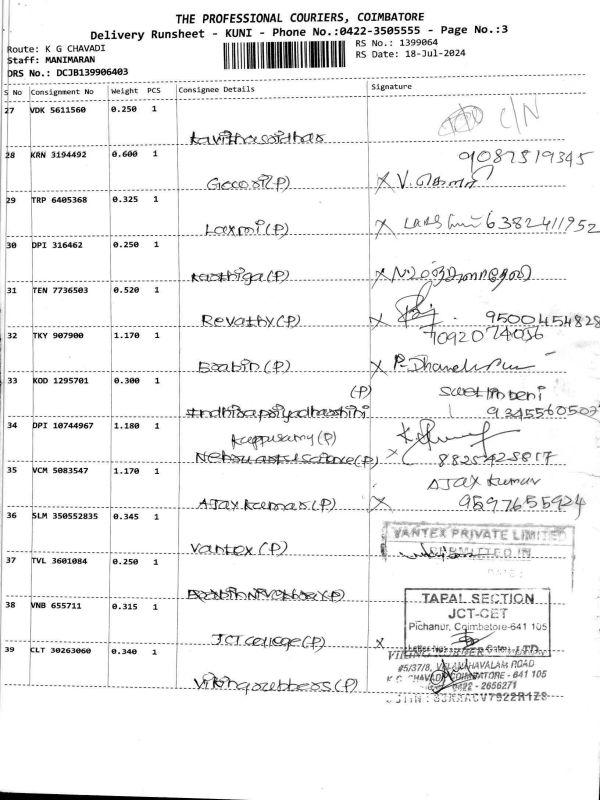 THE PROFESSIONAL COURIERS, COIMBATORE
Delivery Runsheet - KUNI - Phone No.:0422-3505555 - Page No.:3
Route: K G CHAVADI
Staff: MANIMARAN
DRS No.: DCJB139906403
RS No.: 1399064
RS Date: 18-Jul-2024
S No Consignment No Weight PCS Consignee Details Signature
27 VDK 5611560 0.250 1
C/N
28 KRN 3194492 0.600 1
9087519345
Gowri(P)
29 TRP 6405368 0.325 1
Laxmi(P) 6382411952
30 DPI 316462 0.250 1
Karthiga(P)
31 TEN 7736503 0.520 1
Revathy(P) 9500454828
32 TKY 907900 1.170 1
7092074056
33 KOD 1295701 0.300 1
(P)
34 DPI 10744967 1.180 1
Kuppusamy(P)
Nehru arts science(P) 8825425817
35 VCM 5083547 1.170 1
AJAX Kumar
AJAX Kumar(P) 9597655924
36 SLM 350552835 0.345 1
Vantex(P)
VANTEX PRIVATE LIMITED
37 TVL 3601084 0.250 1
38 VNB 655711 0.315 1
TAPAL SECTION
JCT-CET
Pichanur, Coimbatore-641 105
JCT college(P)
39 CLT 30263060 0.340 1
#5/37/8, VELANTHAVALAM ROAD
K G CHAVADI COIMBATORE - 641 105
0422 - 2656271
Viking rubbers(P)